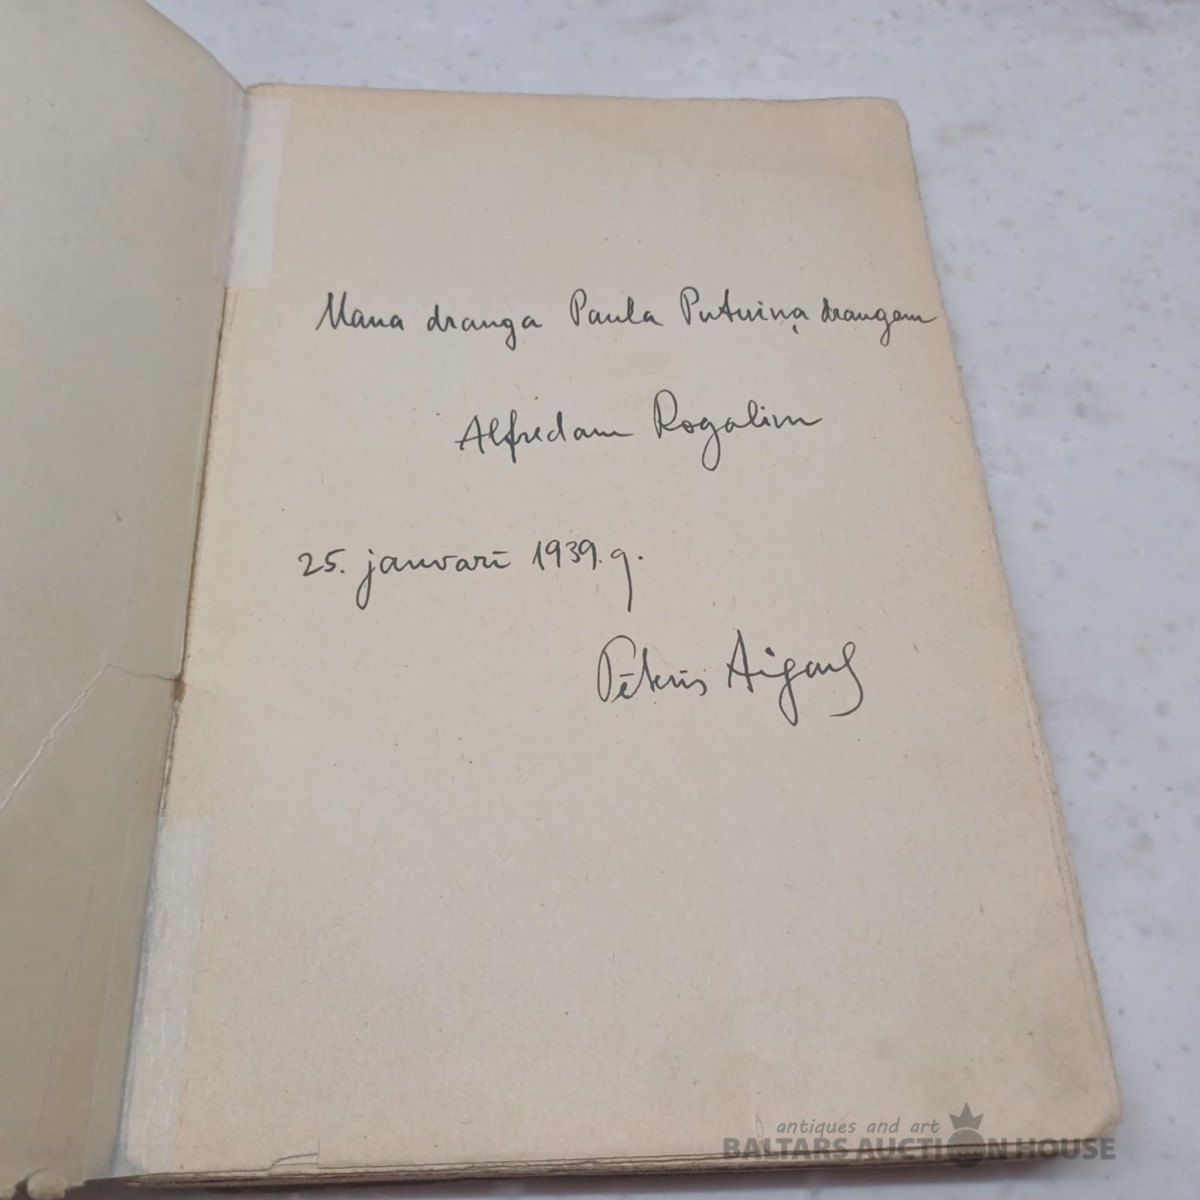 Mana drauga Paula Putniņa draugam
Alfredam Rogalim
25. janvarī 1939. g.
Pēteris Aigars
antiques and art
BALTARS AUCTION HOUSE